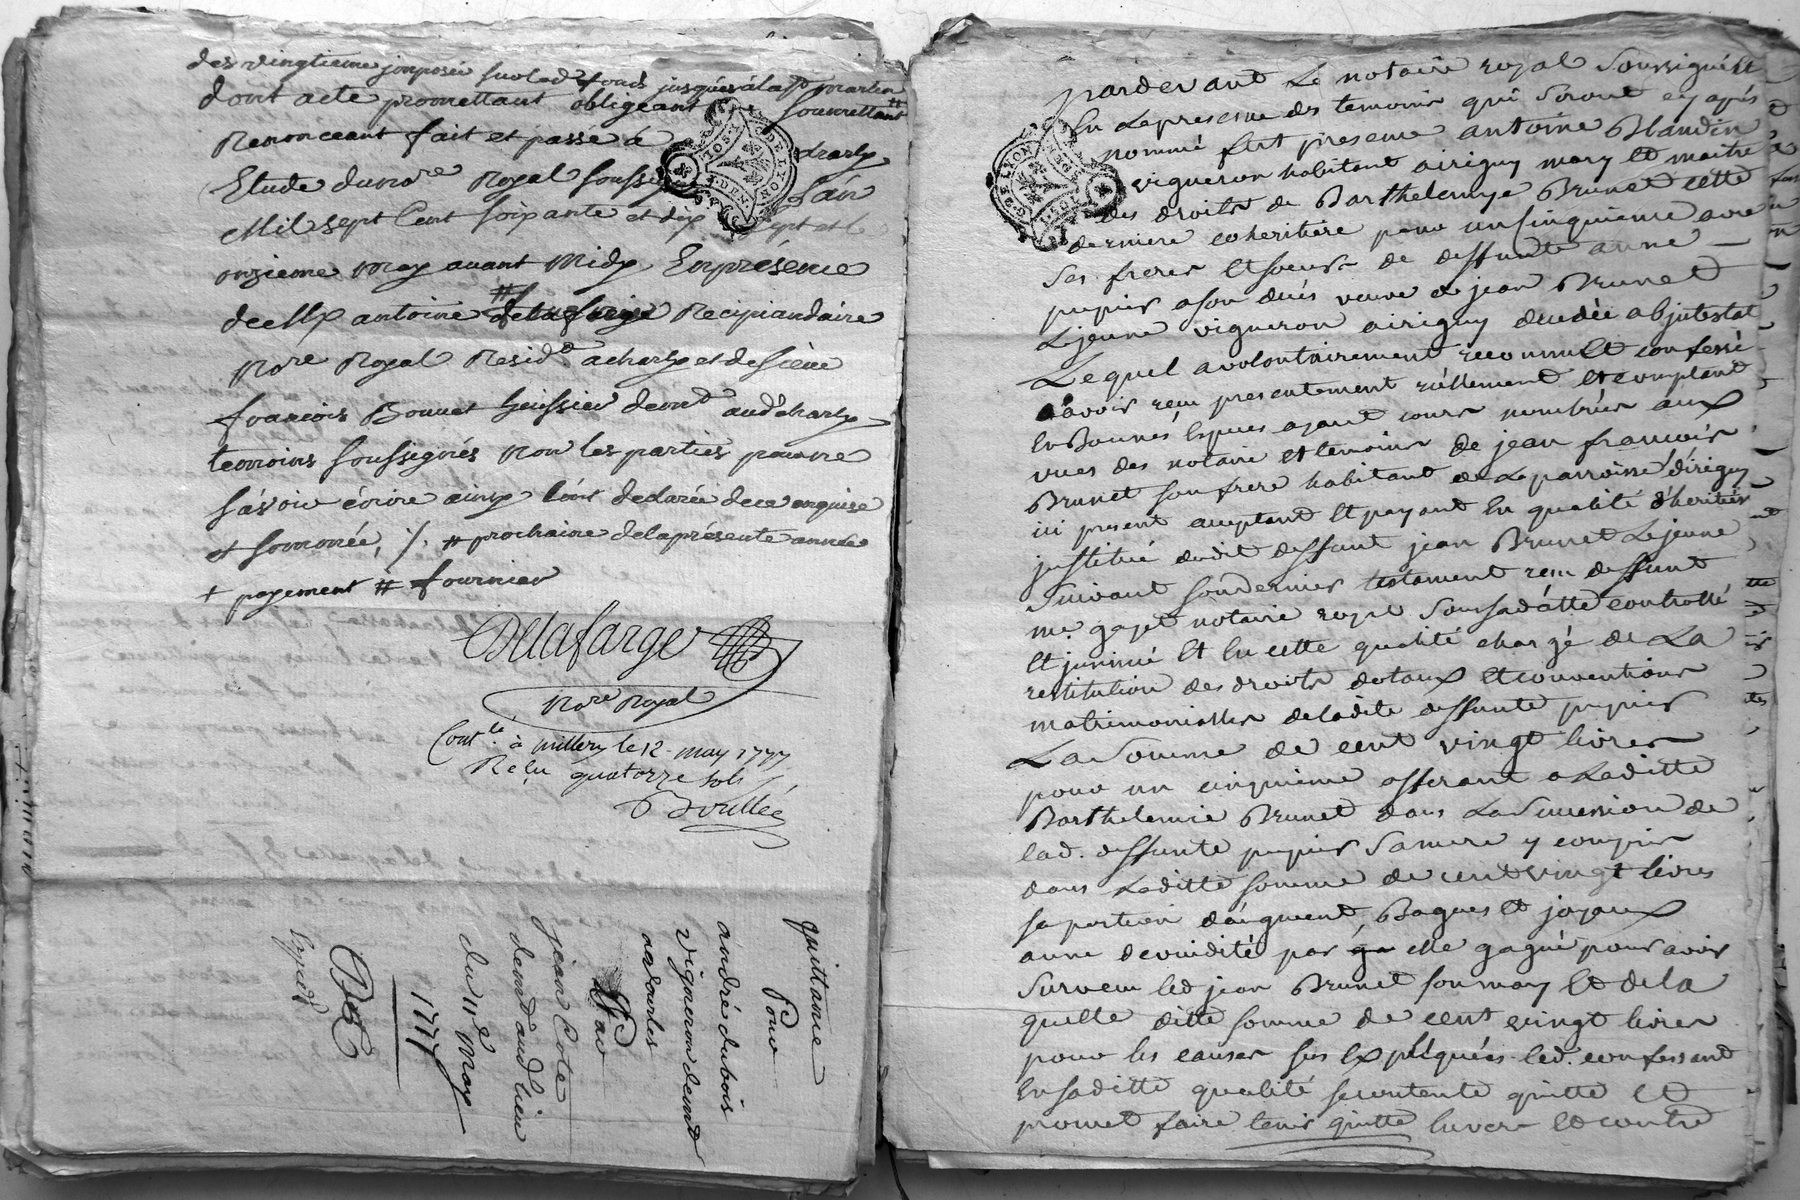 des vingtieme jmposée suoled fond jusques à la st martin
dont acte promettant obligeant soumettant
Renonceant fait et passé a charly
Etude dunore Royal soussigné L'an
Mil sept Cent soixante et dix sept et le
onzieme may avant Midy, Enprésence
de Me antoine delafarge Recipiandaire
Nore Royal Residt acharly et de sieur
francois Bonnet huissier demt aud charly
temoins soussignés non les parties pour ne
sávoir écrire ainsy l'ont declarée de ce enquise
et sommée, ⁒ # prochaine delaprésente année
+ payement # fournier
Delafarge
Nore Royal
Contlé à millery le 12 may 1777
Reçu quatorze sols
Boullée
quittance
Pour
andré dubois
vigneron demt
acharles
Par
jean Cote
demt aud lieu
du 11e May
1777
Expéd
pardevant Le notaire royal Soussigné et
En Lepresence des temoins qui Seront cy apés
nommé fut presene antoine Blandin
vigneron habitant airigny mary et maitre
des droits de Barthelemye Brunet cette
derniere coheritiere pour un cinquieme avec
Ses freres et soeurs de deffunte anne
pupier a son decés veuve de jean Brunet
Lejeune vigneron airigny decedée abjntestat
Lequel avolontairement reconnu et confessé
avoir reçu presentement réellement et comptant
En Bonnes Espues ayant cours nombrées aux
vues des notaire et temoins de jean francois
Brunet son frere habitant de La parroisse d'irigny
ici present acceptant et payant En qualité d'heritier
jnstitué dudit deffunt jean Brunet Lejeune
Suivant sondernier testament reçu deffunt
me gayet notaire royal Soussadatte controllé
Et jnsinué Et En cette qualité chargé de La
restitution des droits dotaux Et conventions
matrimonialles deladite deffunte pupier
La Somme de cent vingt livres
pour un cinquieme afferant a Laditte
Barthelemie Brunet dans La Succession de
lad. deffunte pupier Samere y compris
dans Laditte somme de cent vingt livres
sa portion d'augment, Bagues et joyaux
anne deviudité par elle gagné pour avoir
Survecu led jean Brunet son mary Et de la
quelle ditte somme de cent vingt livres
pour les causes sus Expliquées led. confessant
En saditte qualité secontente quitte Et
promet faire tenir quitte Envers Et contre